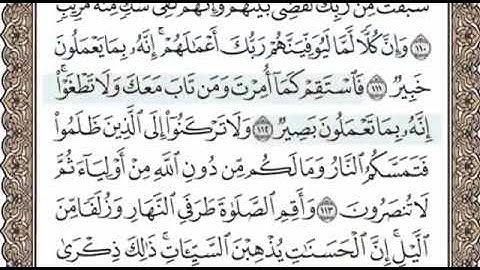 سَبَقَتْ مِن رَّبِّكَ لَقُضِيَ بَيْنَهُمْ وَإِنَّهُمْ لَفِي شَكٍّ مِّنْهُ مُرِيبٍ
١١٠ وَإِنَّ كُلًّا لَّمَّا لَيُوَفِّيَنَّهُمْ رَبُّكَ أَعْمَٰلَهُمْ ۚ إِنَّهُۥ بِمَا يَعْمَلُونَ
خَبِيرٌ ١١١ فَٱسْتَقِمْ كَمَآ أُمِرْتَ وَمَن تَابَ مَعَكَ وَلَا تَطْغَوْا۟ ۚ
إِنَّهُۥ بِمَا تَعْمَلُونَ بَصِيرٌ ١١٢ وَلَا تَرْكَنُوٓا۟ إِلَى ٱلَّذِينَ ظَلَمُوا۟
فَتَمَسَّكُمُ ٱلنَّارُ وَمَا لَكُم مِّن دُونِ ٱللَّهِ مِنْ أَوْلِيَآءَ ثُمَّ
لَا تُنصَرُونَ ١١٣ وَأَقِمِ ٱلصَّلَوٰةَ طَرَفَيِ ٱلنَّهَارِ وَزُلَفًا مِّنَ
ٱلَّيْلِ ۚ إِنَّ ٱلْحَسَنَٰتِ يُذْهِبْنَ ٱلسَّيِّـَٔاتِ ۚ ذَٰلِكَ ذِكْرَىٰ